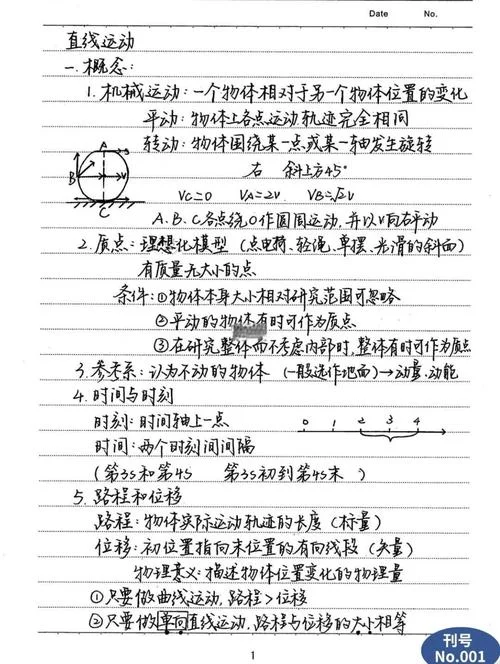 Date No.
直线运动
一.概念:
1.机械运动:一个物体相对于另一个物体位置的变化
平动:物体上各点运动轨迹完全相同
转动:物体围绕某一点或某一轴发生旋转
右 斜上方45°
A
B
V
C
Vc=0 VA=2V VB=√2V
A.B.C各点绕O作圆周运动,并以V向右平动
2.质点:理想化模型(点电荷、轻绳、单摆、光滑的斜面)
有质量无大小的点
条件:①物体本身大小相对研究范围可忽略
②平动的物体有时可作为质点
③在研究整体而不考虑内部时,整体有时可作为质点
3.参考系:认为不动的物体(一般选作地面)→动量、动能
4.时间与时刻
时刻:时间轴上一点
0 1 2 3 4
时间:两个时刻间间隔
(第3S和第4S 第3S初到第4S末)
5.路程和位移
路程:物体实际运动轨迹的长度(标量)
位移:初位置指向末位置的有向线段(矢量)
物理意义:描述物体位置变化的物理量
①只要做曲线运动,路程>位移
②只要做单向直线运动,路程与位移的大小相等
1
刊号
No.001